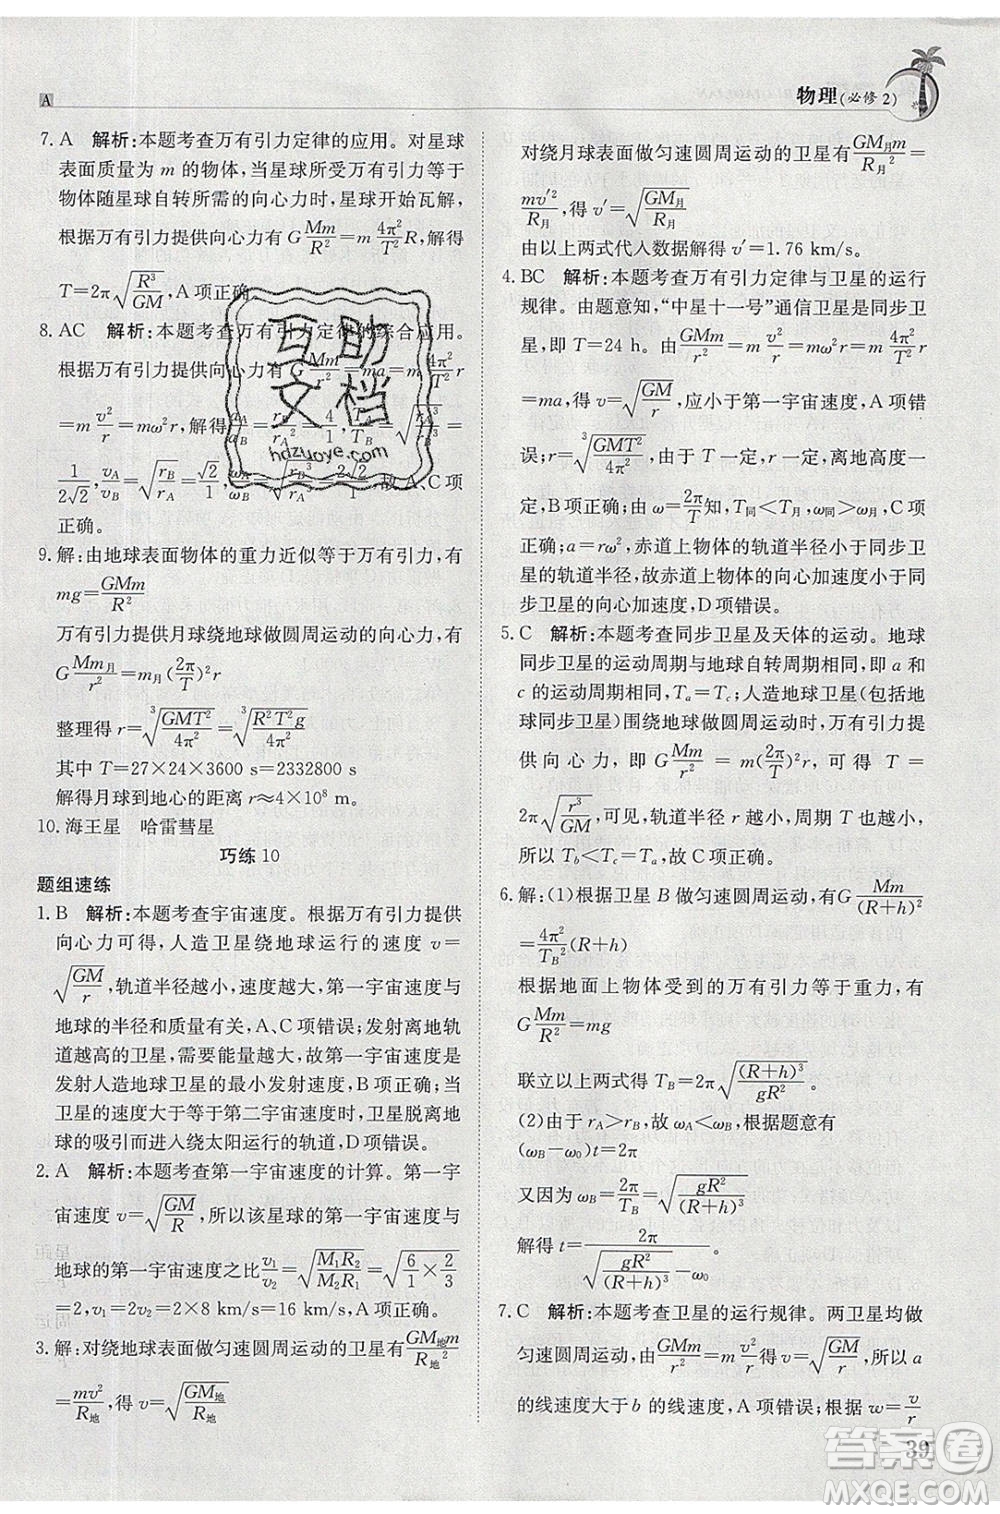 物理(必修2)
A
7. A 解析:本题考查万有引力定律的应用。对星球
表面质量为 m 的物体,当星球的万有引力等于
物体随星球自转的向心力时,星球开始瓦解,
根据万有引力提供向心力 G Mm/R² = m 4π²/T² R,解得
T=2π√(R³/GM),A项正确。
8. AC 解析:本题考查万有引力定律的综合应用。
根据万有引力提供向心力有 G Mm/r² = ma = m 4π²/T² r
= m v²/r = mω²r,解得 a_A/a_B = r_B²/r_A² = 4/1,T_A/T_B = √(r_A³/r_B³) =
1/2√2,v_A/v_B = √(r_B/r_A) = √2/1,ω_A/ω_B = √(r_B³/r_A³) = 2√2/1,故A、C项
正确。
9. 解:由地球表面物体的重力近似等于万有引力,有
mg = GMm/R²
万有引力提供月球绕地球做圆周运动的向心力,有
G Mm月/r² = m月(2π/T)²r
整理得 r = ³√(GMT²/4π²) = ³√(R²T²g/4π²)
其中 T=27×24×3600 s=2332800 s
解得月球到地心的距离 r≈4×10⁸ m。
10. 海王星 哈雷彗星
巧练10
题组速练
1. B 解析:本题考查宇宙速度。根据万有引力提供
向心力可得,人造卫星绕地球运行的速度 v =
√(GM/r),轨道半径越小,速度越大,第一宇宙速度与
地球的半径和质量有关,A、C项错误;发射离地轨
道越高的卫星,需要能量越大,故第一宇宙速度是
发射人造地球卫星的最小发射速度,B项正确;当
卫星的速度大于等于第二宇宙速度时,卫星脱离地
球的吸引而进入绕太阳运行的轨道,D项错误。
2. A 解析:本题考查第一宇宙速度的计算。第一宇
宙速度 v = √(GM/R),所以该星球的第一宇宙速度与
地球的第一宇宙速度之比 v₁/v₂ = √(M₁R₂/M₂R₁) = √(6/1 × 2/3)
=2,v₁=2v₂=2×8 km/s=16 km/s,A项正确。
3. 解:对绕地球表面做匀速圆周运动的卫星有 GM地m/R地²
= mv²/R地,得 v = √(GM地/R地)
对绕月球表面做匀速圆周运动的卫星有 GM月m/R月² =
mv′²/R月,得 v′ = √(GM月/R月)
由以上两式代入数据解得 v′=1.76 km/s。
4. BC 解析:本题考查万有引力定律与卫星的运行
规律。由题意知,“中星十一号”通信卫星是同步卫
星,即 T=24 h。根据 GMm/r² = m v²/r = mω²r = m 4π²/T² r
=ma,得 v = √(GM/r),应小于第一宇宙速度,A项错
误;r = ³√(GMT²/4π²),由于 T 一定,r 一定,离地高度一
定,B项正确;由 ω = 2π/T 知,T同<T月,ω同>ω月,C项
正确;a=rω²,赤道上物体的轨道半径小于同步卫
星的轨道半径,故赤道上物体的向心加速度小于同
步卫星的向心加速度,D项错误。
5. C 解析:本题考查同步卫星及天体的运动。地球
同步卫星的运动周期与地球自转周期相同,即 a 和
c 的运动周期相同,T_a=T_c;人造地球卫星(包括地
球同步卫星)围绕地球做圆周运动时,万有引力提
供向心力,即 G Mm/r² = m(2π/T)²r,整理得 T =
2π√(r³/GM),轨道半径 r 越小,周期 T 也越小,
所以 T_b<T_c=T_a,故C项正确。
6. 解:(1)根据卫星 B 做匀速圆周运动,有 G Mm/(R+h)²
= m 4π²/T_B² (R+h)
根据地面上物体受到的万有引力等于重力,有
G Mm/R² = mg
联立以上两式得 T_B = 2π√((R+h)³/gR²)。
(2)由于 r_A>r_B,故 ω_A<ω_B,根据题意有
(ω_B-ω₀)t=2π
又因为 ω_B = 2π/T_B = √(gR²/(R+h)³)
解得 t = 2π/(√(gR²/(R+h)³) - ω₀)。
7. C 解析:本题考查卫星的运行规律。两卫星均做
匀速圆周运动,GMm/r² = m v²/r,得 v = √(GM/r),所以 a
的线速度大于 b 的线速度,A项错误;根据 w = v/r
39
互助
文档
hdzuoye.com
答案圈
MXQE.COM